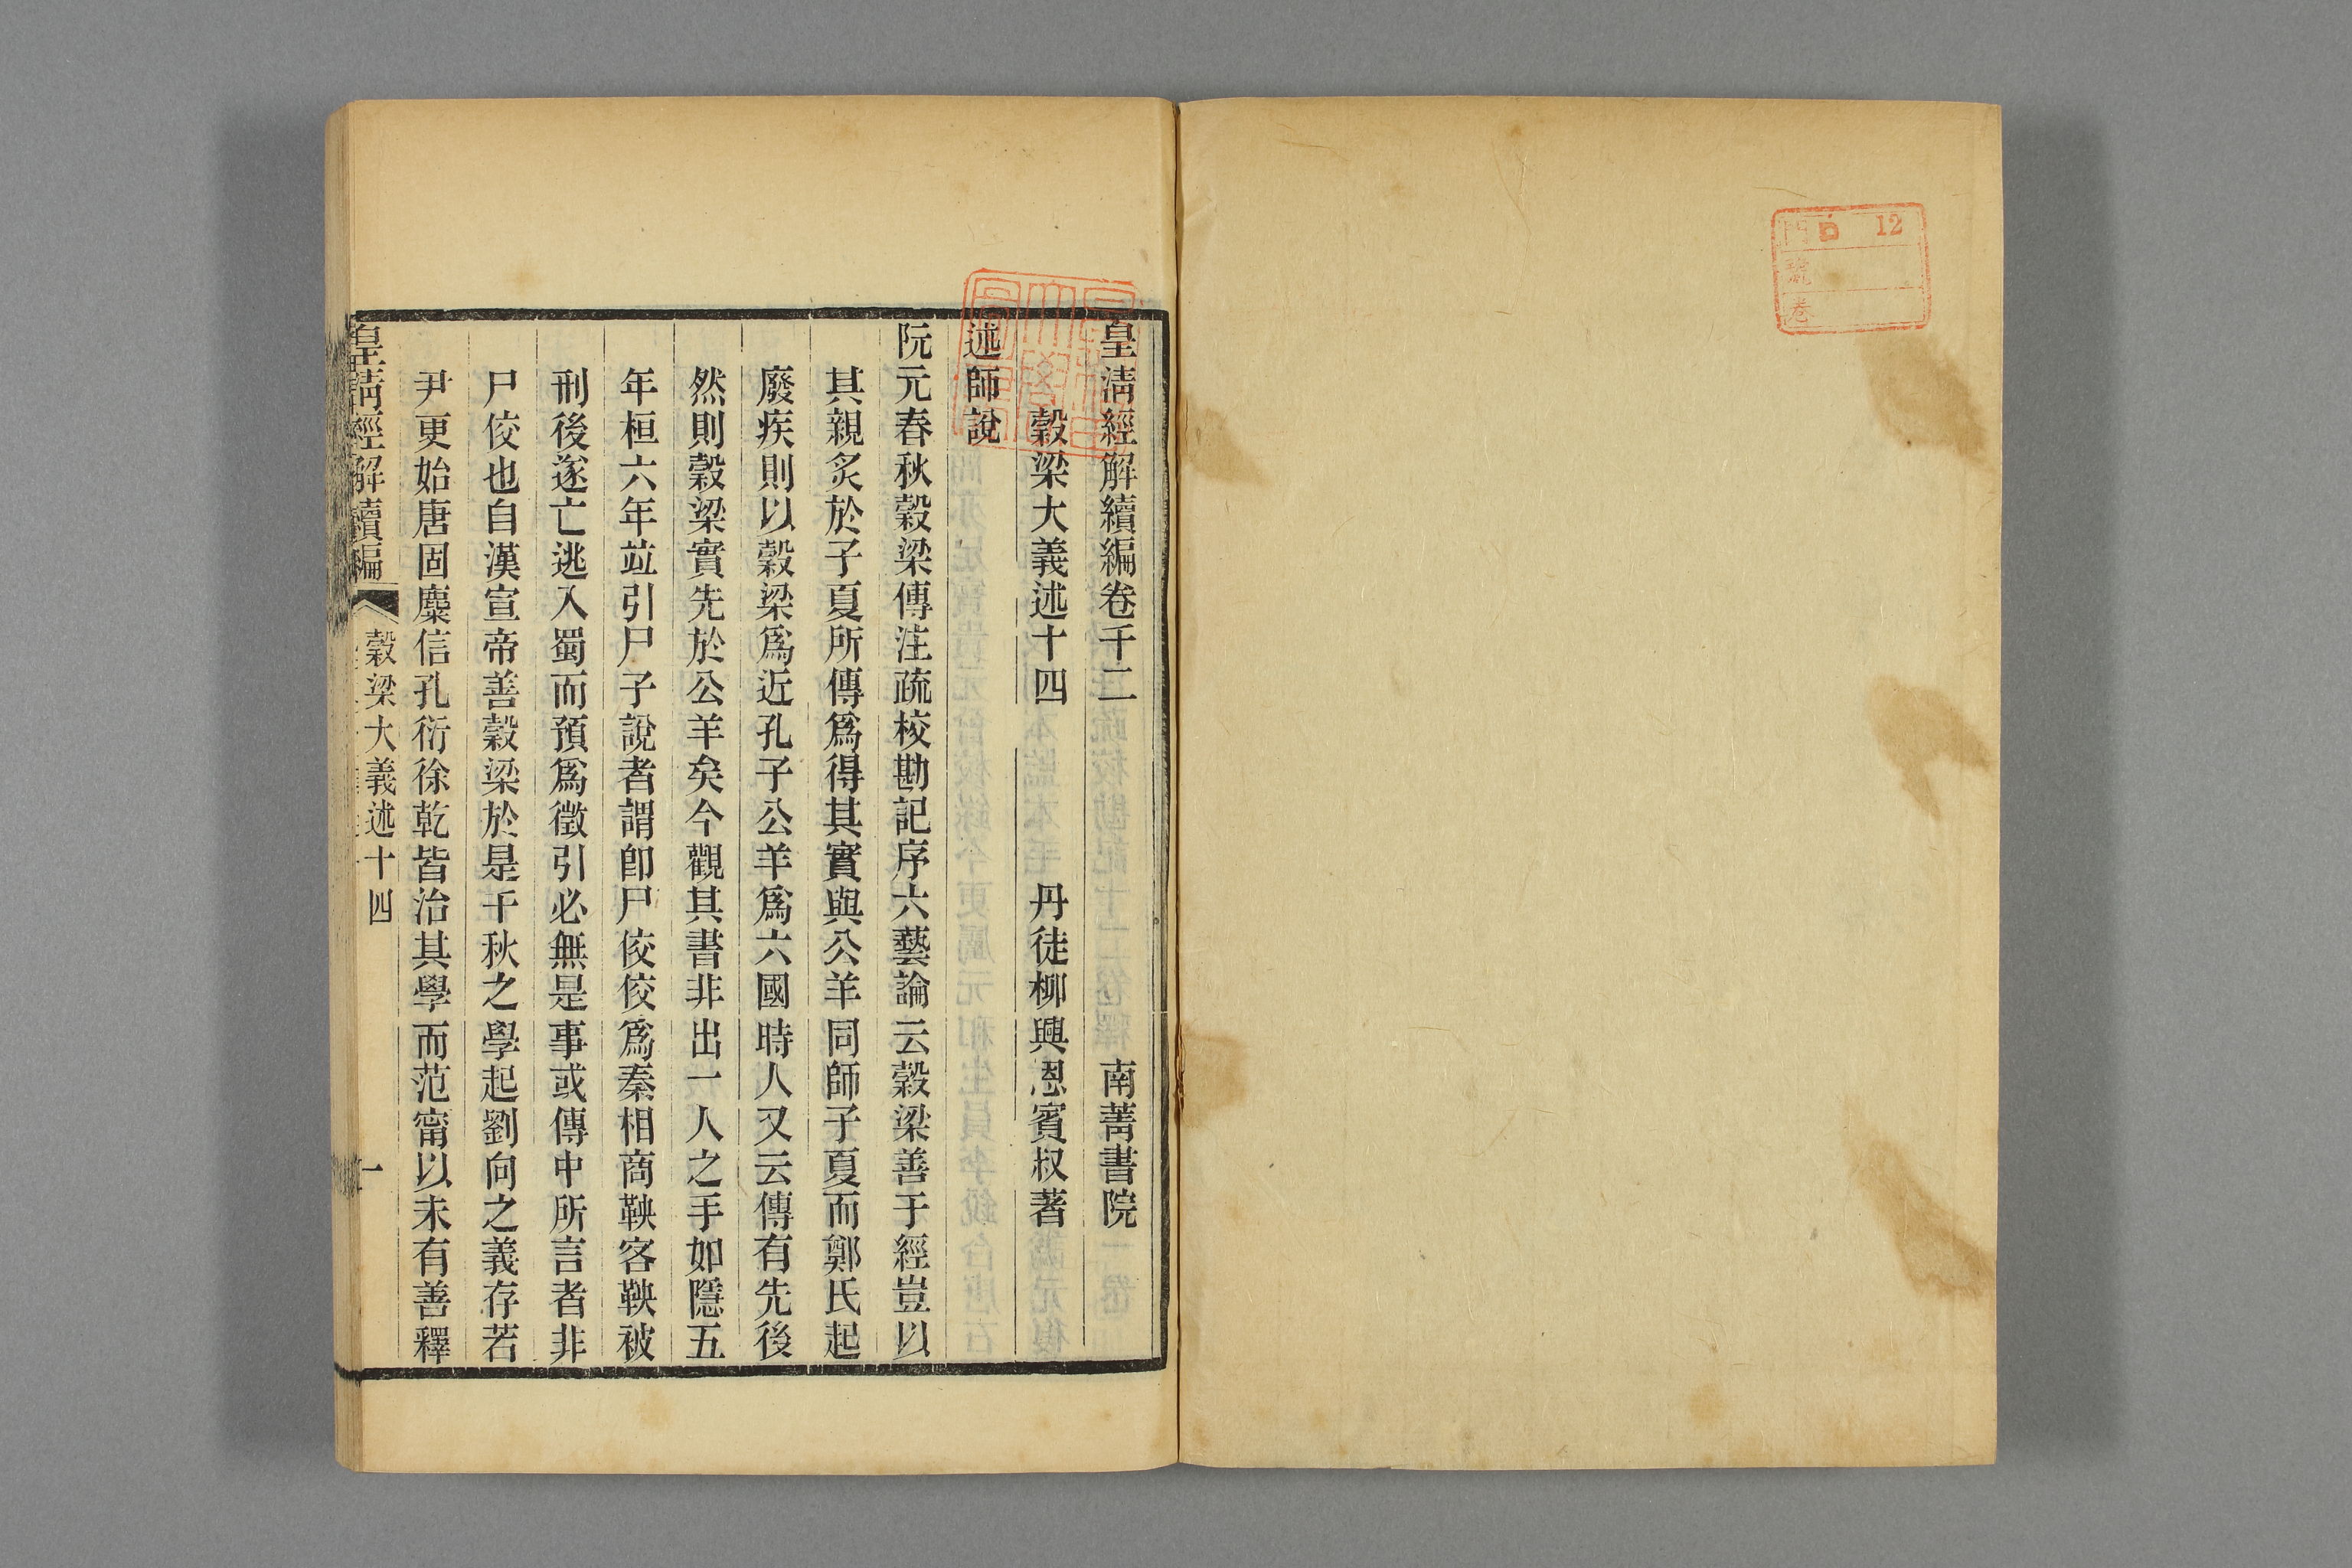 門 12
號
卷
皇淸經解續編卷千二 南菁書院
穀梁大義述十四 丹徒柳興恩賓叔著
述師說
阮元春秋穀梁傳注疏校勘記序六藝論云穀梁善于經豈以
其親炙於子夏所傳爲得其實與公羊同師子夏而鄭氏起
廢疾則以穀梁爲近孔子公羊爲六國時人又云傳有先後
然則穀梁實先於公羊矣今觀其書非出一人之手如隱五
年桓六年竝引尸子說者謂卽尸佼佼爲秦相商鞅客鞅被
刑後遂亡逃入蜀而預爲徵引必無是事或傳中所言者非
尸佼也自漢宣帝善穀梁於是千秋之學起劉向之義存若
尹更始唐固麋信孔衍徐乾皆治其學而范甯以未有善釋
皇淸經解續編 穀梁大義述十四 一